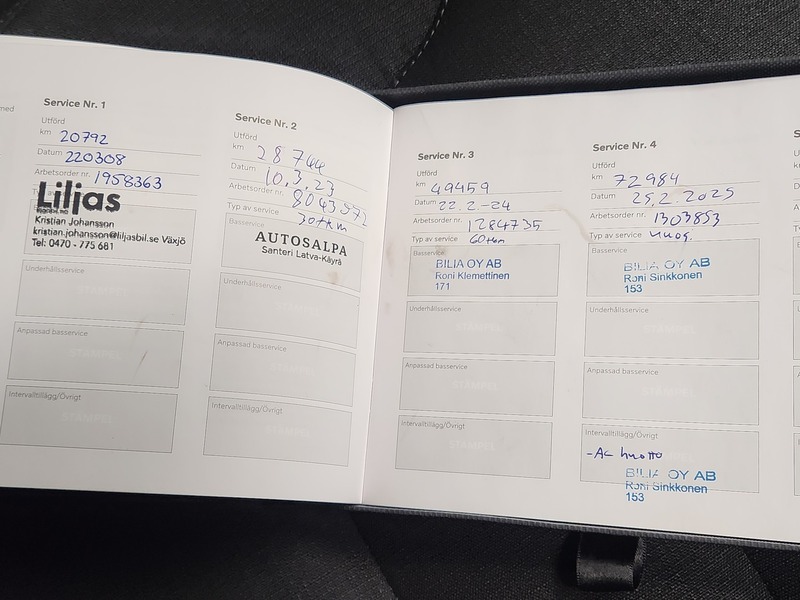 med
Service Nr. 1
Utförd
km 20792
Datum 220308
Arbetsorder nr. 1958363
Liljas
Kristian Johansson
kristian.johansson@liljasbil.se Växjö
Tel: 0470 - 775 681
Underhållsservice
STÄMPEL
Anpassad basservice
STÄMPEL
Intervalltillägg/Övrigt
STÄMPEL
Service Nr. 2
Utförd
km 28744
Datum 10.3.23
Arbetsorder nr.
Typ av service 30tkm
Basservice
AUTOSALPA
Santeri Latva-Käyrä
Underhållsservice
STÄMPEL
Anpassad basservice
STÄMPEL
Intervalltillägg/Övrigt
STÄMPEL
Service Nr. 3
Utförd
km 49459
Datum 22.2.-24
Arbetsorder nr. 1284735
Typ av service 60tkm
Basservice
BILIA OY AB
Roni Klemettinen
171
Underhållsservice
STÄMPEL
Anpassad basservice
STÄMPEL
Intervalltillägg/Övrigt
STÄMPEL
Service Nr. 4
Utförd
km 72984
Datum 25.2.2025
Arbetsorder nr. 1303853
Typ av service
Basservice
BILIA OY AB
Roni Sinkkonen
153
Underhållsservice
STÄMPEL
Anpassad basservice
STÄMPEL
Intervalltillägg/Övrigt
-AC huolto
BILIA OY AB
Roni Sinkkonen
153